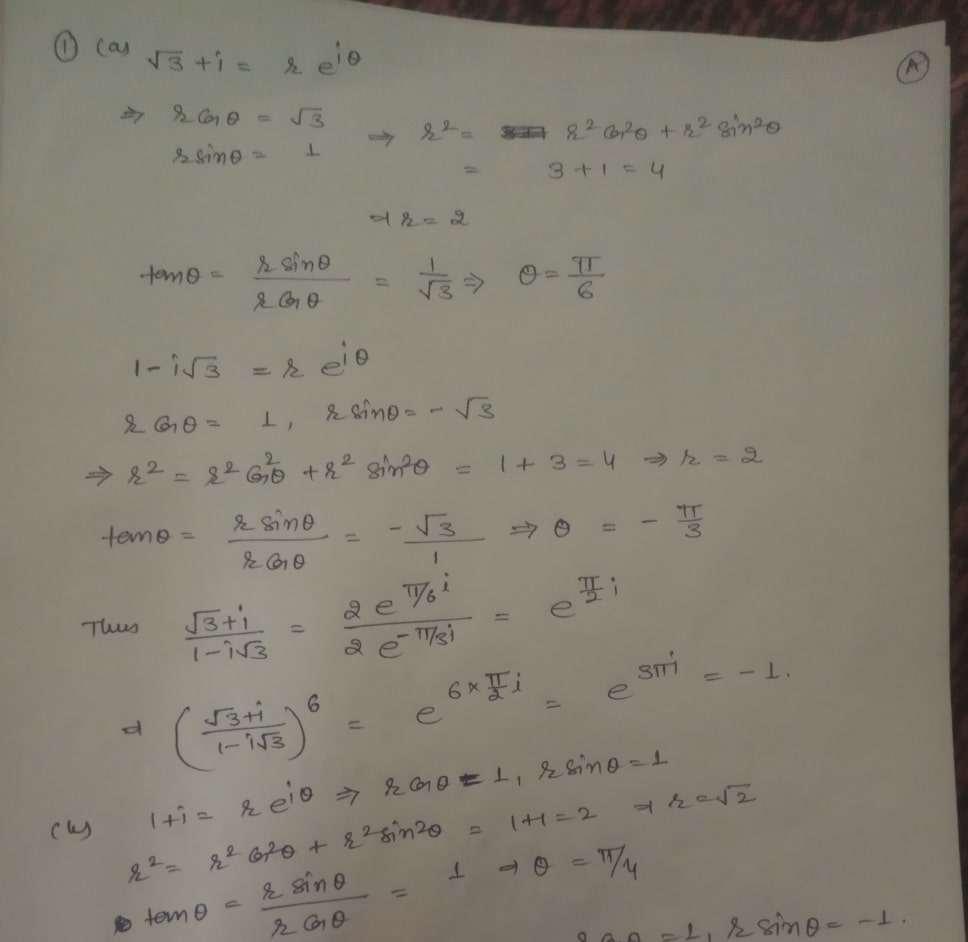 ① (a) √3 + i = r e^{iθ} Ⓐ
⇒ r cos θ = √3
r sin θ = 1 ⇒ r² = r² cos²θ + r² sin²θ
= 3 + 1 = 4
⇒ r = 2
tan θ = r sin θ / r cos θ = 1/√3 ⇒ θ = π/6
1 - i√3 = r e^{iθ}
r cos θ = 1, r sin θ = - √3
⇒ r² = r² cos²θ + r² sin²θ = 1 + 3 = 4 ⇒ r = 2
tan θ = r sin θ / r cos θ = - √3 / 1 ⇒ θ = - π/3
Thus (√3 + i)/(1 - i√3) = 2 e^{π/6 i} / 2 e^{-π/3 i} = e^{π/2 i}
⇒ ((√3 + i)/(1 - i√3))^6 = e^{6 × π/2 i} = e^{3πi} = - 1.
(b) 1 + i = r e^{iθ} ⇒ r cos θ = 1, r sin θ = 1
r² = r² cos²θ + r² sin²θ = 1 + 1 = 2 ⇒ r = √2
tan θ = r sin θ / r cos θ = 1 ⇒ θ = π/4
r cos θ = 1, r sin θ = - 1.